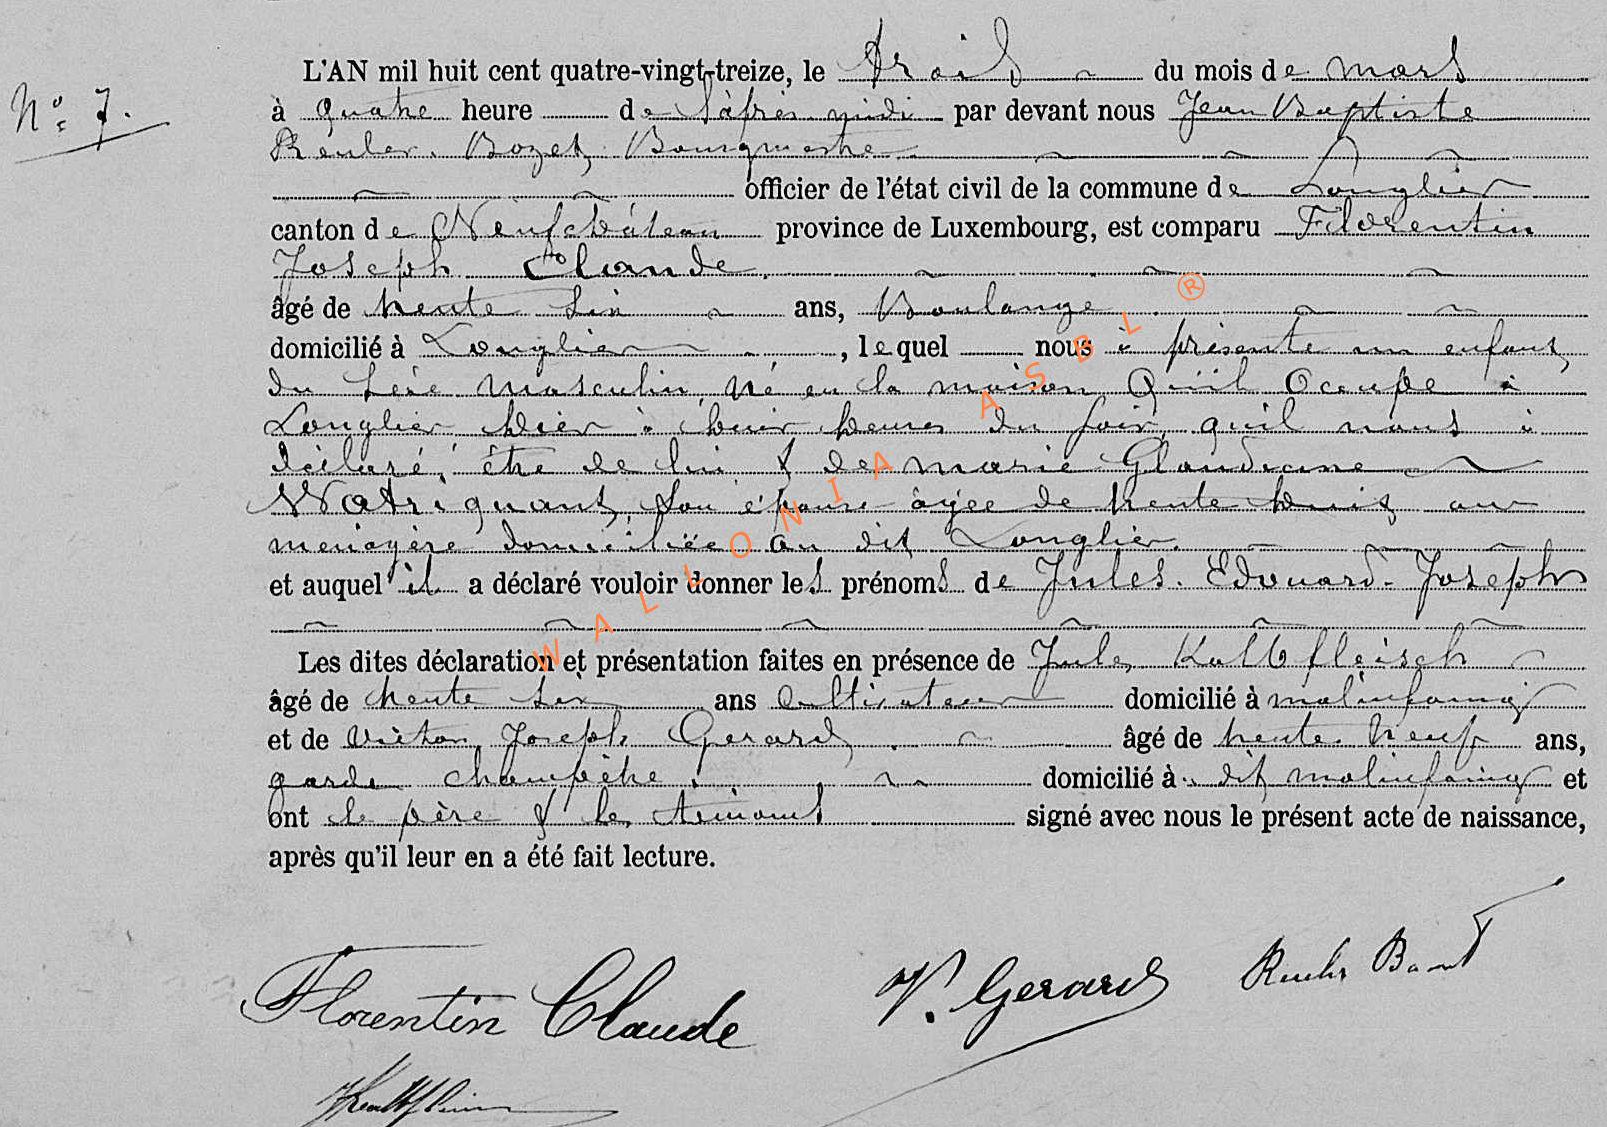 N° 7.
L'AN mil huit cent quatre-vingt-treize, le trois du mois de mars
à quatre heure de l'après midi par devant nous Jean Baptiste
Reuler Bozet, Bourgmestre
officier de l'état civil de la commune de Longlier
canton de Neufchâteau province de Luxembourg, est comparu Florentin
Joseph Claude
âgé de trente six ans, Boulanger
domicilié à Longlier, lequel nous à présenté un enfant
du sexe masculin, né en la maison qu'il occupe à
Longlier hier à huit heures du soir, qu'il nous à
déclaré être de lui & de marie Glaudine
Watriquant, son épouse âgée de trente huit an
menagère domiciliée au dit Longlier.
et auquel il a déclaré vouloir donner les prénoms de Jules. Edouard. Joseph
Les dites déclaration et présentation faites en présence de Jules Kalbfleisch
âgé de trente six ans cultivateur domicilié à malinfaing
et de Victor Joseph Gerard, âgé de trente neuf ans,
garde champêtre domicilié à dit malinfaing et
ont le père & les témoins signé avec nous le présent acte de naissance,
après qu'il leur en a été fait lecture.
Florentin Claude V. Gerard
WALLONIA ASBL ®